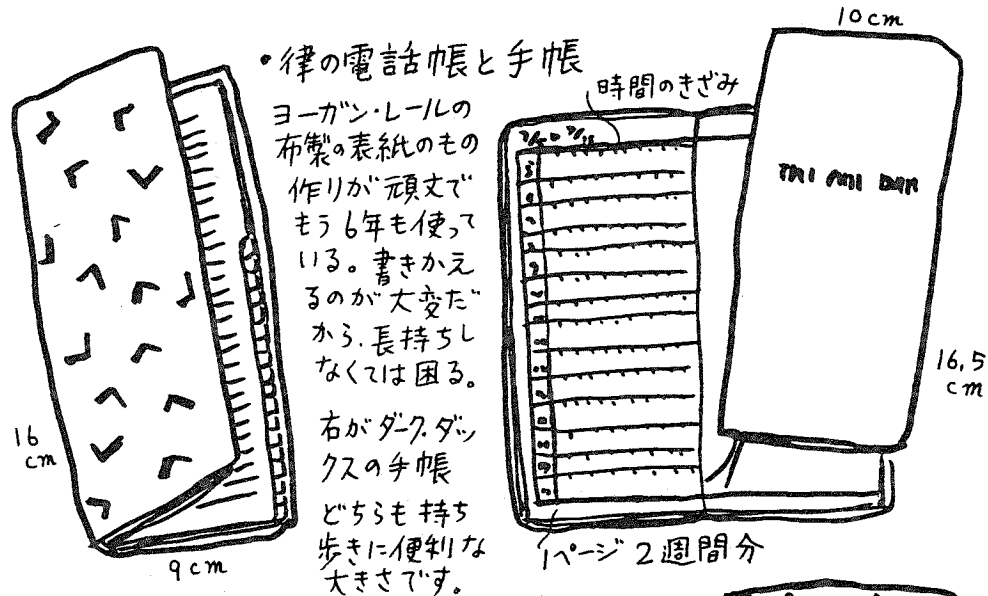 ・律の電話帳と手帳
ヨーガン・レールの
布製の表紙のもの
作りが頑丈で
もう6年も使って
いる。書きかえ
るのが大変だ
から、長持ちし
なくては困る。
右がダーク・ダッ
クスの手帳
どちらも持ち
歩きに便利な
大きさです。
16
cm
9cm
時間のきざみ
1ページ2週間分
10cm
16,5
cm